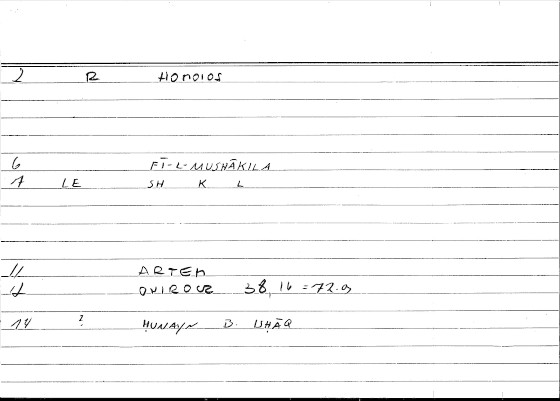 2 R HOMOIOS
6 FĪ-L-MUSHĀKILA
7 LE SH K L
11 ARTEM
12 38, 16 = 72.9
14 ? ḤUNAYN B. ISḤĀQ